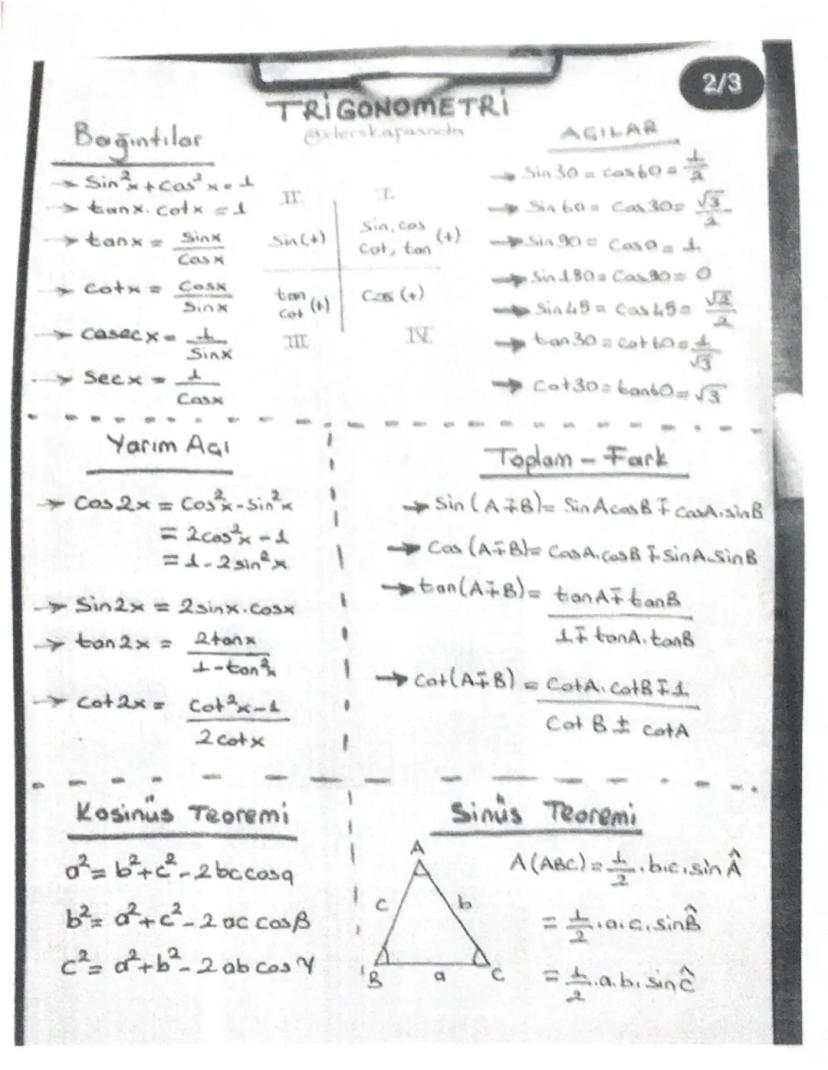 2/3
TRİGONOMETRİ
Bağıntılar
→ Sin²x + Cos²x = 1
→ tanx . cotx = 1
→ tanx = Sinx / Cosx
→ Cotx = Cosx / Sinx
→ Cosecx = 1 / Sinx
→ Secx = 1 / Cosx
II. I.
Sin (+)
Sin, cos
Cot, tan (+)
tan
Cot (+)
Cos (+)
III IV.
AÇILAR
→ Sin30 = cos60 = 1/2
→ Sin60 = Cos30 = √3/2
→ Sin90 = Cos0 = 1
→ Sin180 = Cos90 = 0
→ Sin45 = Cos45 = √2/2
→ tan30 = cot60 = 1/√3
→ Cot30 = tan60 = √3
Yarım Açı
→ Cos2x = Cos²x - Sin²x
= 2cos²x - 1
= 1 - 2sin²x
→ Sin2x = 2sinx.cosx
→ tan2x = 2tanx / 1 - tan²x
→ Cot2x = Cot²x - 1 / 2cotx
Toplam - Fark
→ Sin (A∓B) = SinAcosB ∓ cosA.sinB
→ Cos (A∓B) = CosA.cosB ∓ SinA.SinB
→ tan (A∓B) = tanA ∓ tanB / 1 ∓ tanA.tanB
→ Cot (A∓B) = CotA.cotB ∓ 1 / Cot B ± cotA
Kosinüs Teoremi
a² = b² + c² - 2bccosα
b² = a² + c² - 2ac cosβ
c² = a² + b² - 2ab cos γ
Sinüs Teoremi
A
c b
B a C
A(ABC) = 1/2 . b.c. sin Â
= 1/2 . a.c. sin B̂
= 1/2 . a.b. sin Ĉ